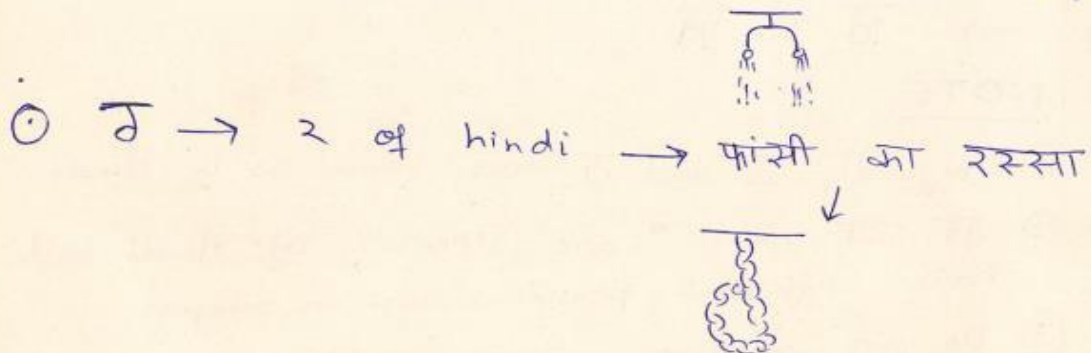 ⊙ ਰ → र of hindi → फांसी का रस्सा